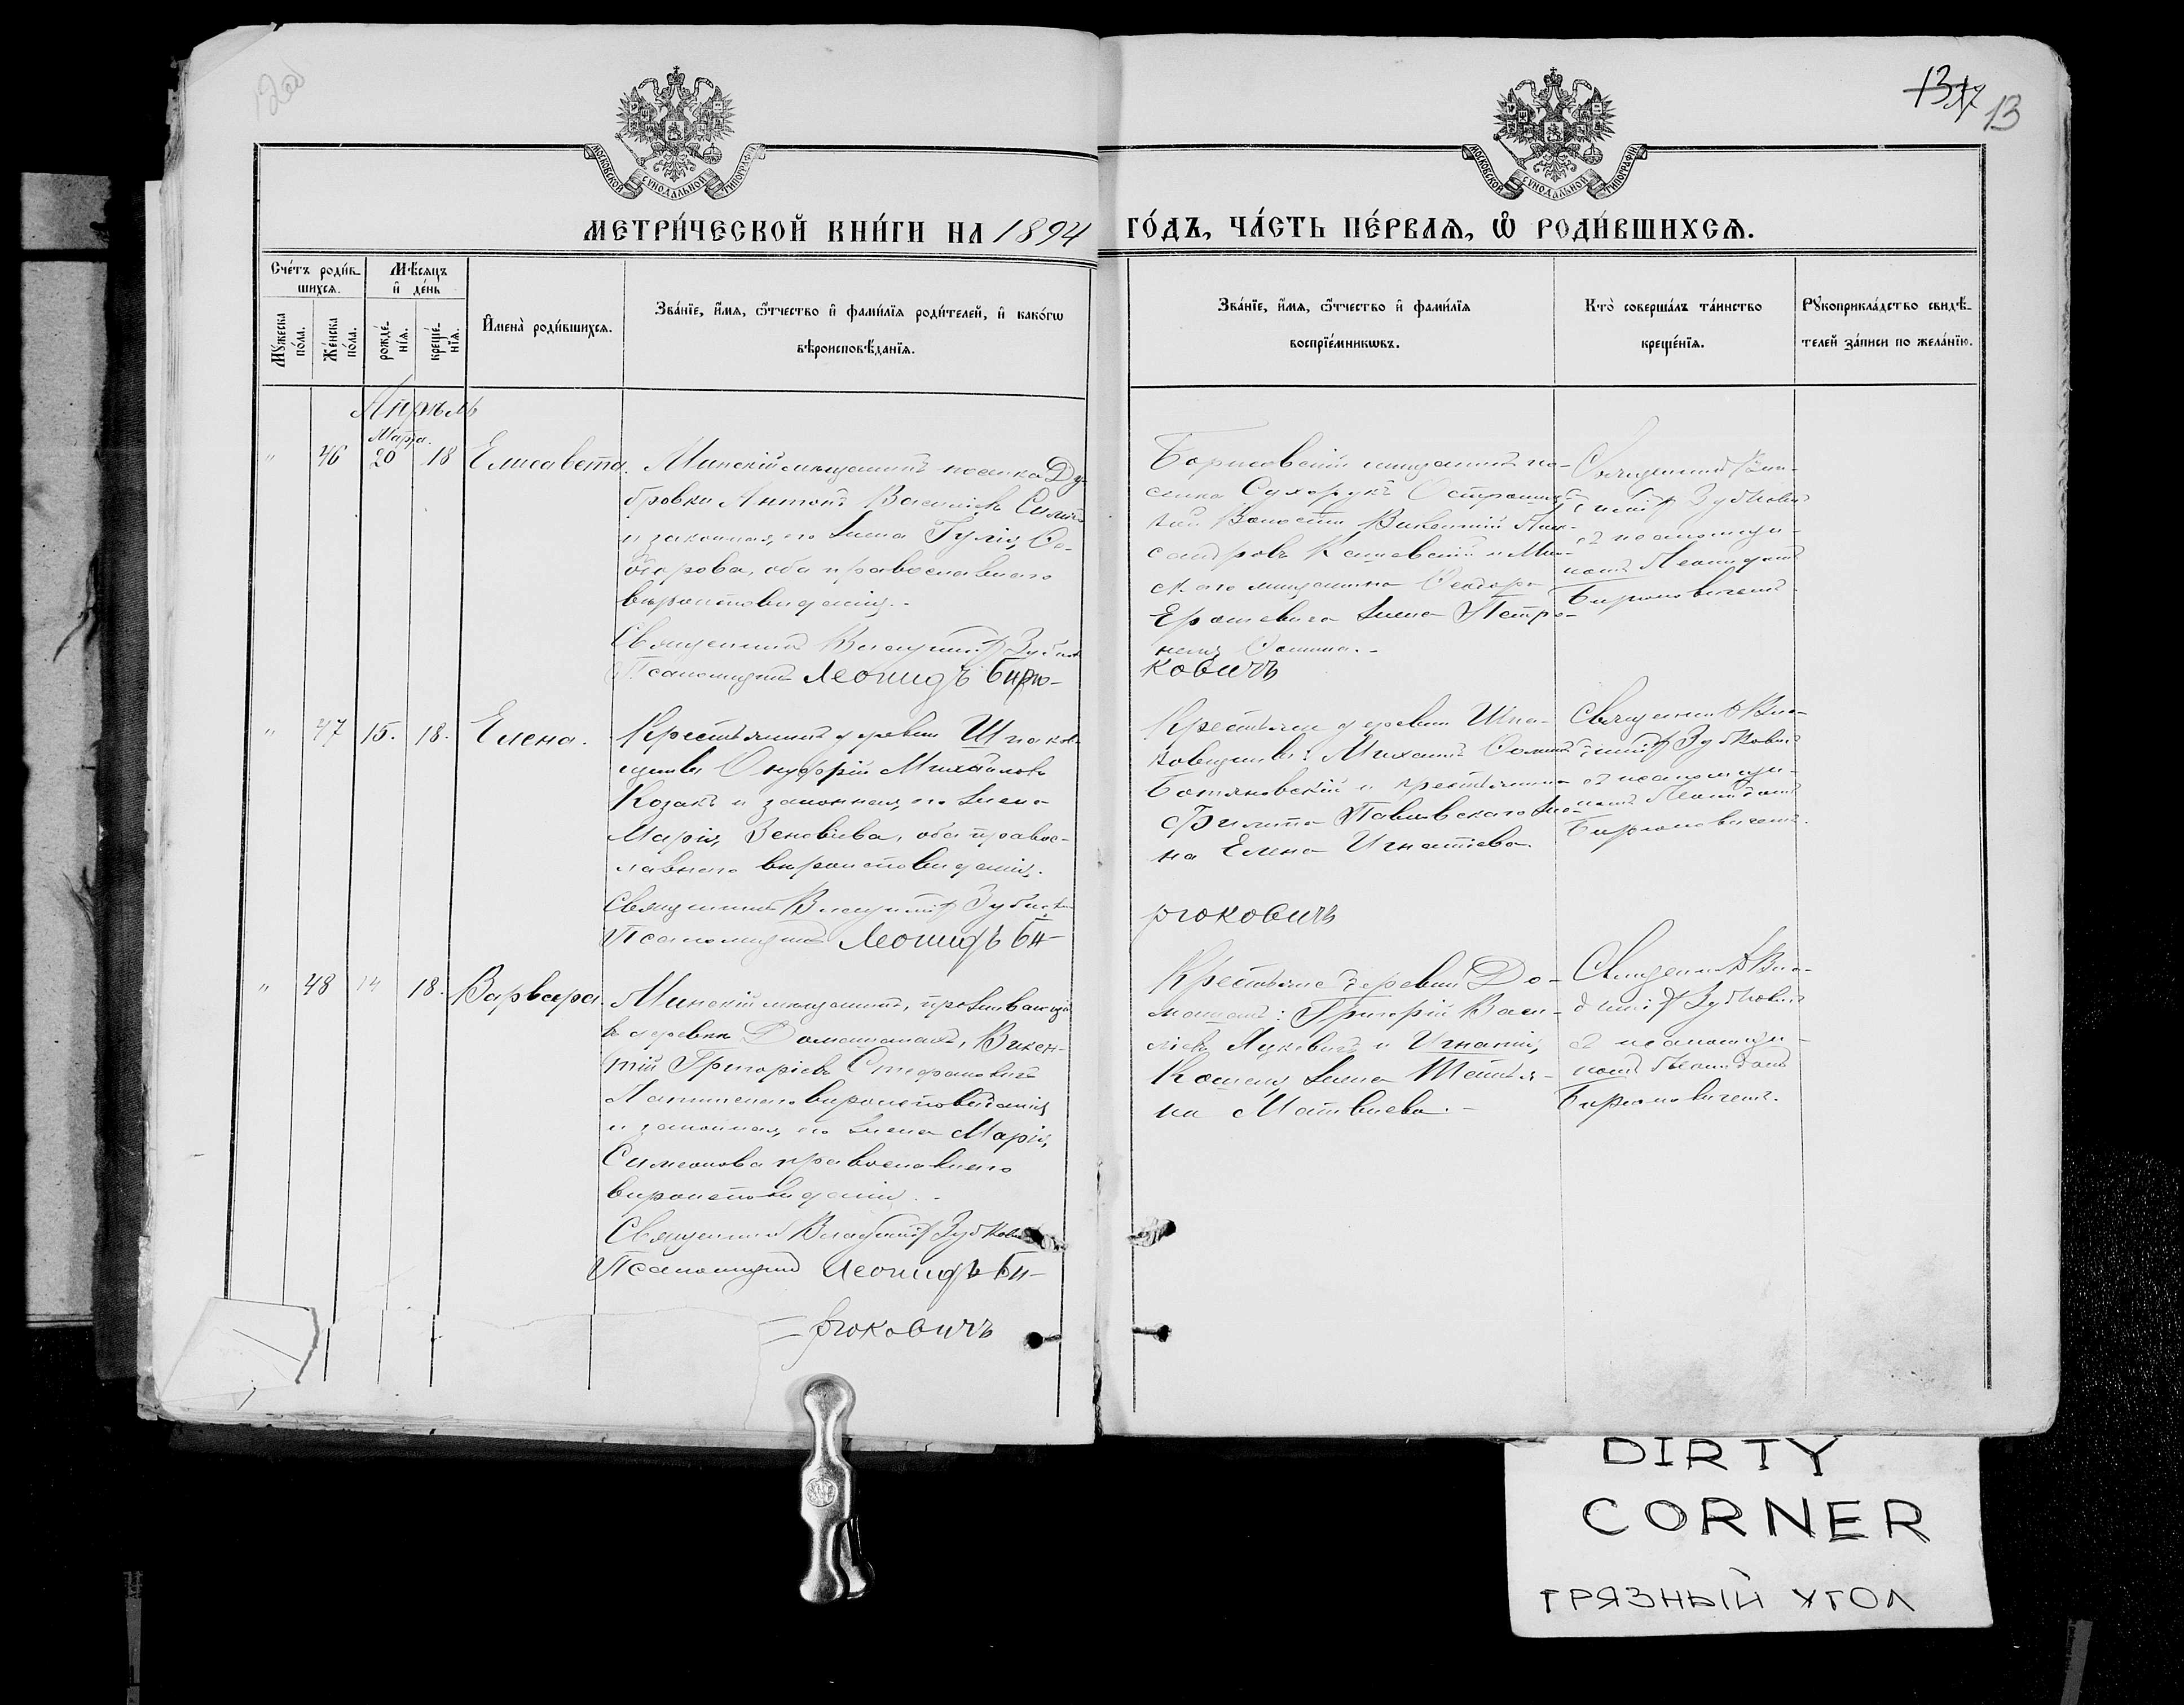 13
МОСКОВСКОЙ СУНОДАЛЬНОЙ ТИПОГРАФІИ
МОСКОВСКОЙ СУНОДАЛЬНОЙ ТИПОГРАФІИ
МЕТРИ́ЧЕСКОЙ КНИ́ГИ НА 1894 ГО́ДЪ, ЧА́СТЬ ПЕ́РВАѦ, Ѡ҆ РОДИ́ВШИХСѦ.
Сче́тъ роди́в-
шихсѧ.
Мѣ́сѧцъ
и҆ де́нь
Мꙋ́жеска
по́ла.
Же́нска
по́ла.
рожде́-
нїѧ.
креще́-
нїѧ.
И҆мена̀ роди́вшихсѧ.
Зва́нїе, и҆́мѧ, ѻ҆́тчество и҆ фами́лїѧ роди́телей, и҆ како́гѡ
вѣроисповѣ́данїѧ.
Зва́нїе, и҆́мѧ, ѻ҆́тчество и҆ фами́лїѧ
воспрїе́мникѡвъ.
Кто̀ соверша́лъ та́инство
креще́нїѧ.
Рꙋкоприкла́дство свидѣ́-
телей за́писи по жела́нїю.
Апрѣль
Марта.
" 46 20 18 Елисавета.
Минскій мѣщанинъ поселка Ду-
бровки Антонъ Васильевъ
и законная его жена Юлія Ѳе-
дорова, оба православнаго
вѣроисповѣданія.
Священникъ Владиміръ Зубковичъ
Псаломщикъ Леонидъ Бирю-
ковичъ
Борисовскій мѣщанинъ по-
селка Сухорукъ
Волости Викентій Алек-
сандровъ и Мин-
скаго мѣщанина Ѳеодора
жена Петро-
нела
Священникъ Вла-
диміръ Зубковичъ
съ псаломщи-
комъ Леонидомъ
Бирюковичемъ.
" 47 15. 18. Елена.
Крестьянинъ деревни Шпаков-
щины Онуфрій Михайловъ
Козакъ и законная его жена
Марія Зеновіева, оба правос-
лавнаго вѣроисповѣданія.
Священникъ Владиміръ Зубковичъ
Псаломщикъ Леонидъ Би-
рюковичъ
Крестьяне деревни Шпа-
ковщины: Михаилъ
Ботяновскій и крестьянина
Филиппа Павловскаго же-
на Елена Игнатіева
Священникъ Вла-
диміръ Зубковичъ
съ псаломщи-
комъ Леонидомъ
Бирюковичемъ.
" 48 14 18. Варвара.
Минскій мѣщанинъ, проживающій
въ деревни Домашанахъ, Викен-
тій Григоріевъ Стефановичъ
Латинскаго вѣроисповѣданія
и законная его жена Марія
Симеонова православнаго
вѣроисповѣданія.
Священникъ Владиміръ Зубковичъ
Псаломщикъ Леонидъ Би-
= рюковичъ
Крестьяне деревни До-
машанъ: Григорій Васи-
ліевъ Яцкевичъ и Игнатія
жена Татья-
на Матвіева.
Священникъ Вла-
диміръ Зубковичъ
съ псаломщи-
комъ Леонидомъ
Бирюковичемъ.
DIRTY
CORNER
ГРЯЗНЫЙ УГОЛ